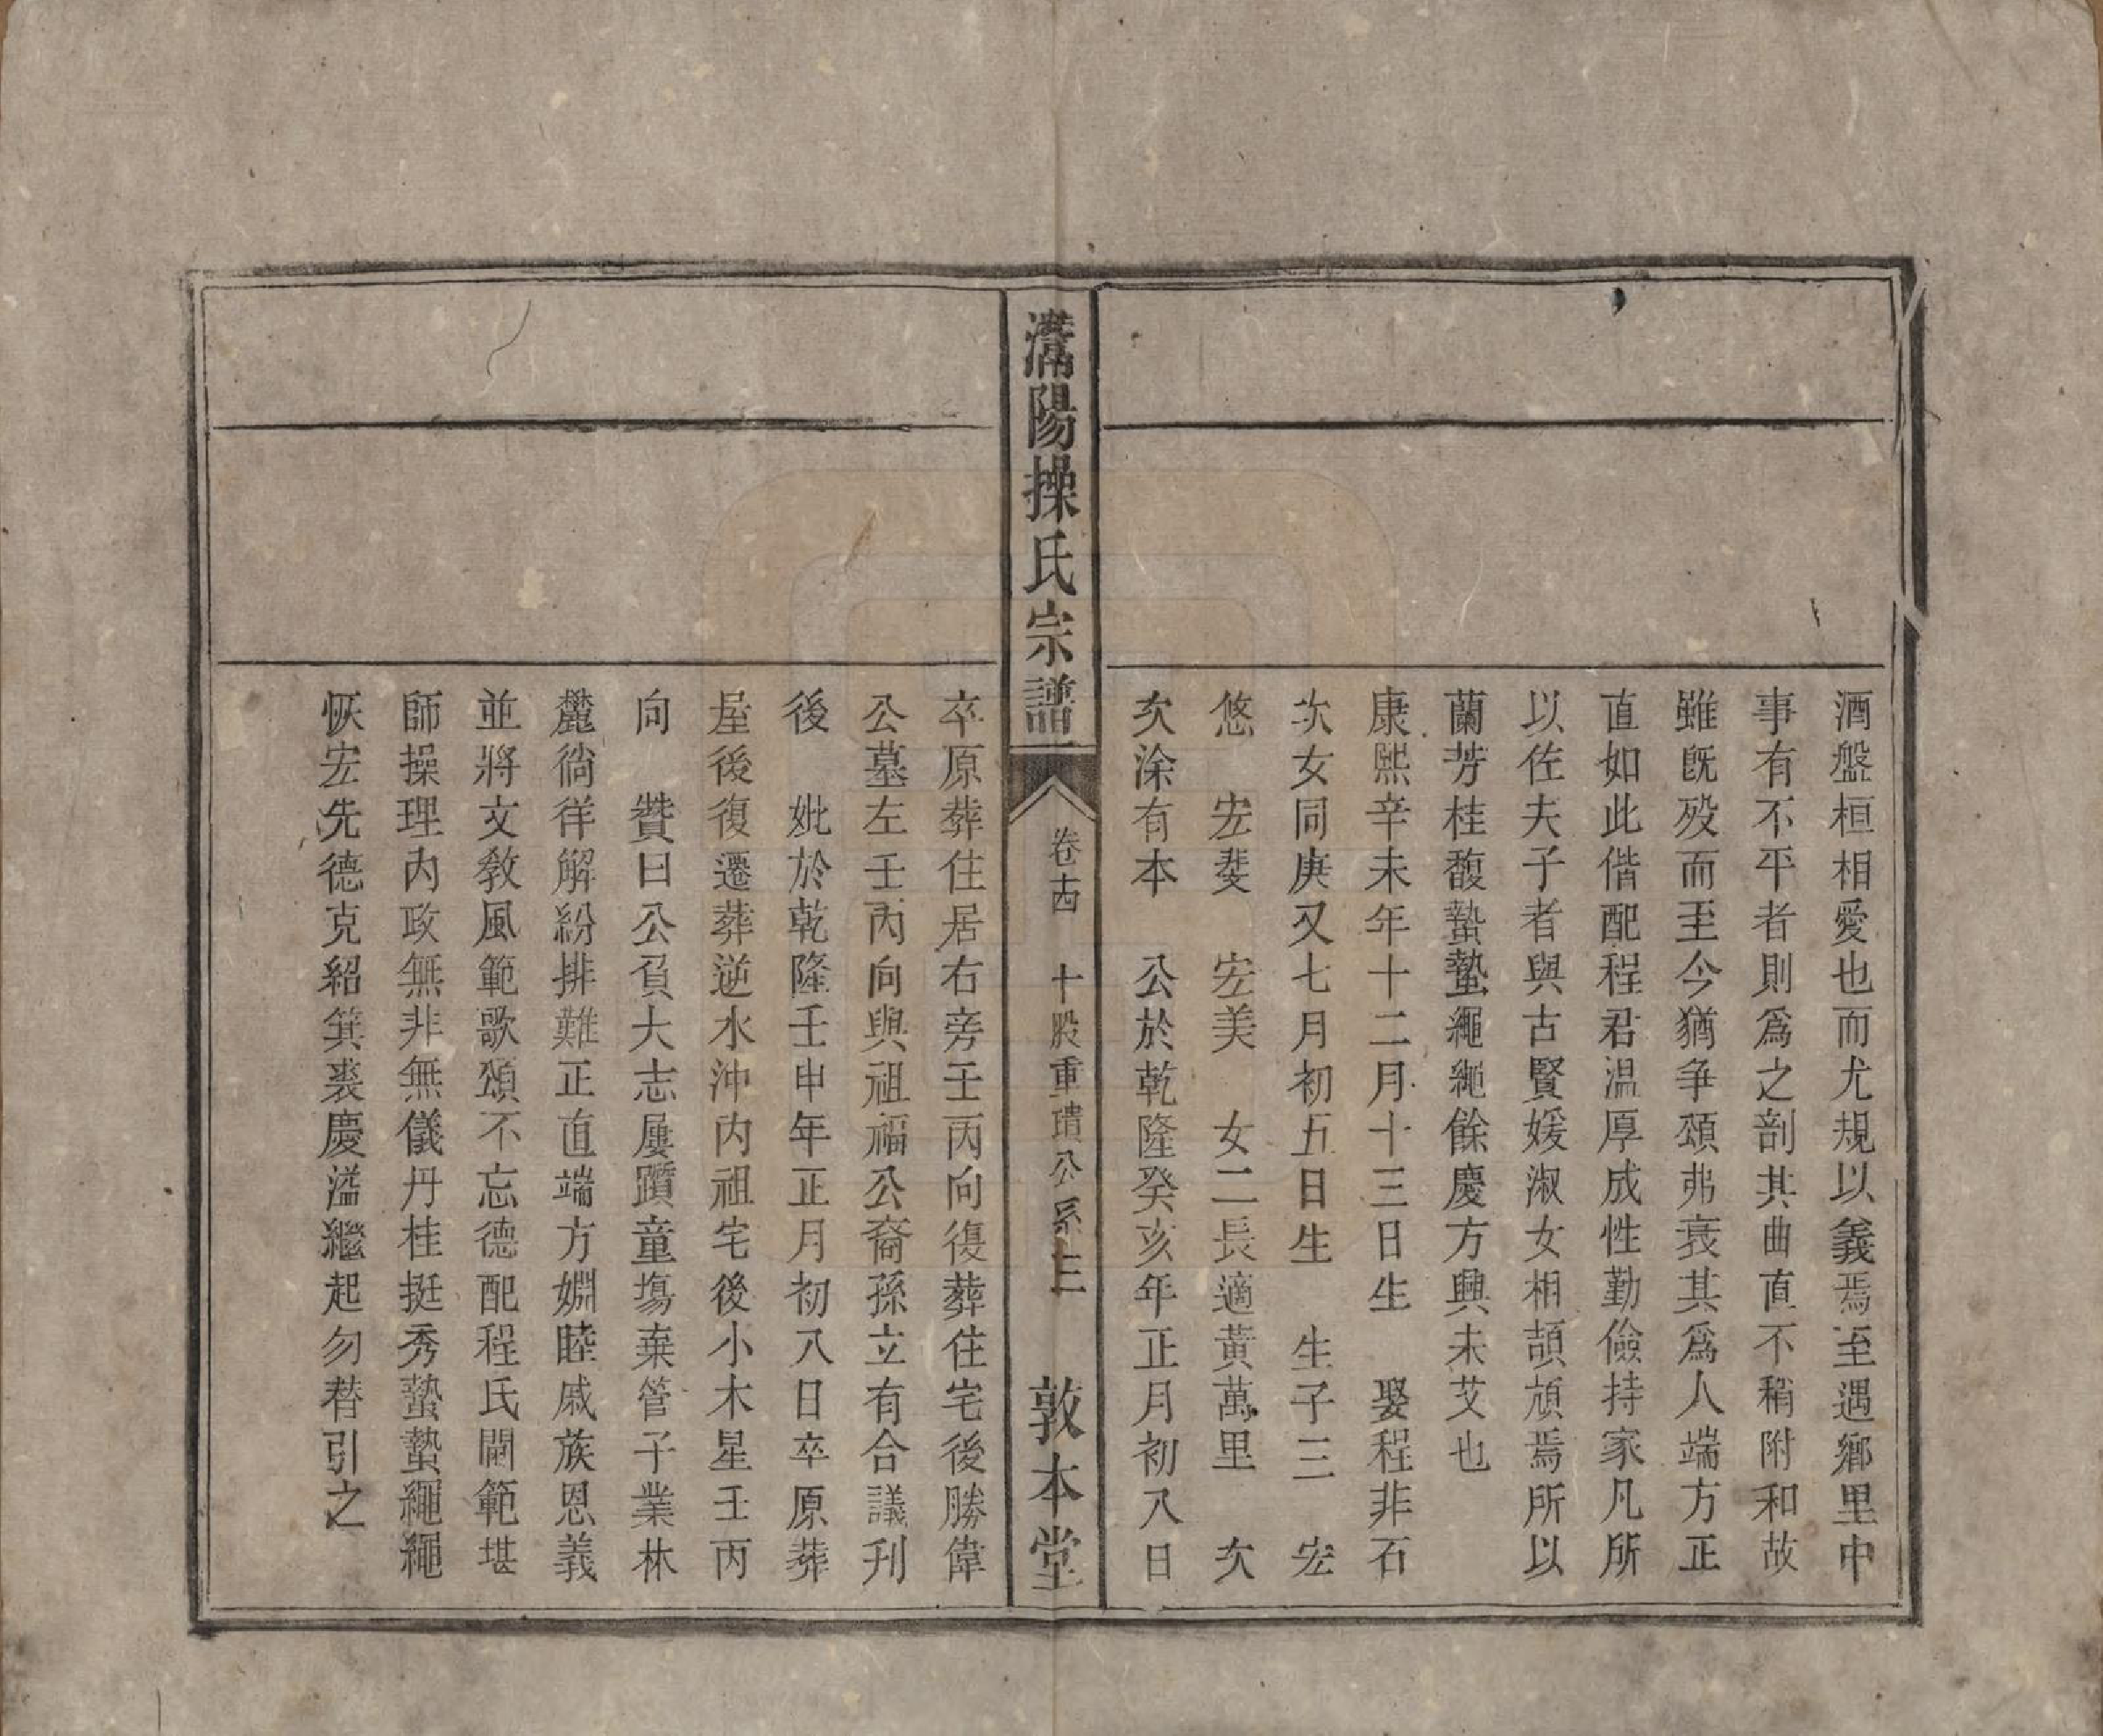 酒盤桓相愛也而尤規以義焉至遇鄉里中
事有不平者則爲之剖其曲直不稍附和故
雖旣殁而至今猶争頌弗衰其爲人端方正
直如此偕配程君温厚成性勤儉持家凡所
以佐夫子者與古賢媛淑女相頡頏焉所以
蘭芳桂馥蟄蟄繩繩餘慶方興未艾也
康熙辛未年十二月十三日生　娶程非石
次女同庚又七月初五日生　生子三　宏
悠　宏斐　宏美　女二長適黄萬里　次
次涂有本　公於乾隆癸亥年正月初八日
滿陽操氏宗譜　卷十四　十股重璝公系　三　敦本堂
卒原葬住居右旁壬丙向復葬住宅後勝偉
公墓左壬丙向與祖福公裔孫立有合議刋
後　妣於乾隆壬申年正月初八日卒原葬
屋後復遷葬逆水沖内祖宅後小木星壬丙
向　贊曰公負大志屢躓童塲棄管子業林
麓徜徉解紛排難正直端方婣睦戚族恩義
並將文敎風範歌頌不忘德配程氏閫範堪
師操理内政無非無儀丹桂挺秀蟄蟄繩繩
恢宏先德克紹箕裘慶溢繼起勿替引之